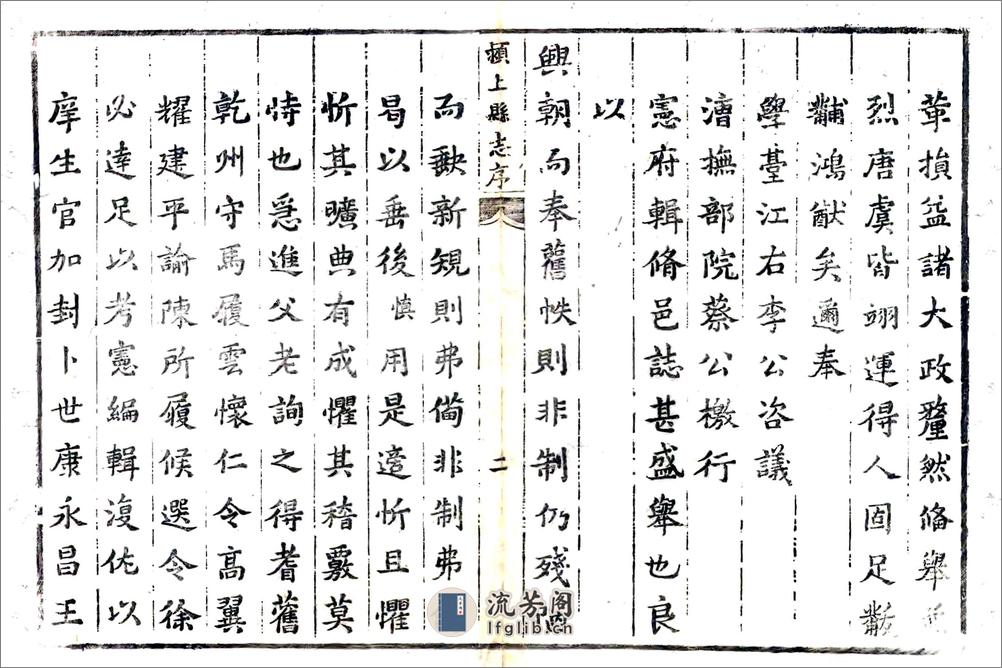 革損益諸大政釐然俻舉
烈唐虞皆翊運得人固足黼
黼鴻猷矣邇奉
學臺江右李公咨議
漕撫部院蔡公檄行
憲府輯脩邑誌甚盛舉也良
以
興朝而奉舊帙則非制仍殘
潁上縣志序
二
而歝新規則弗備非制弗
曷以垂後慎用是遑忻且懼
忻其曠典有成懼其稽覈莫
恃也爰進父老詢之得耆舊
乾州守馬履雲懷仁令高翼
耀建平諭陳所履候選令徐
必達足以考憲編輯復佐以
庠生官加封卜世康永昌王
流芳阁
lfglib.cn